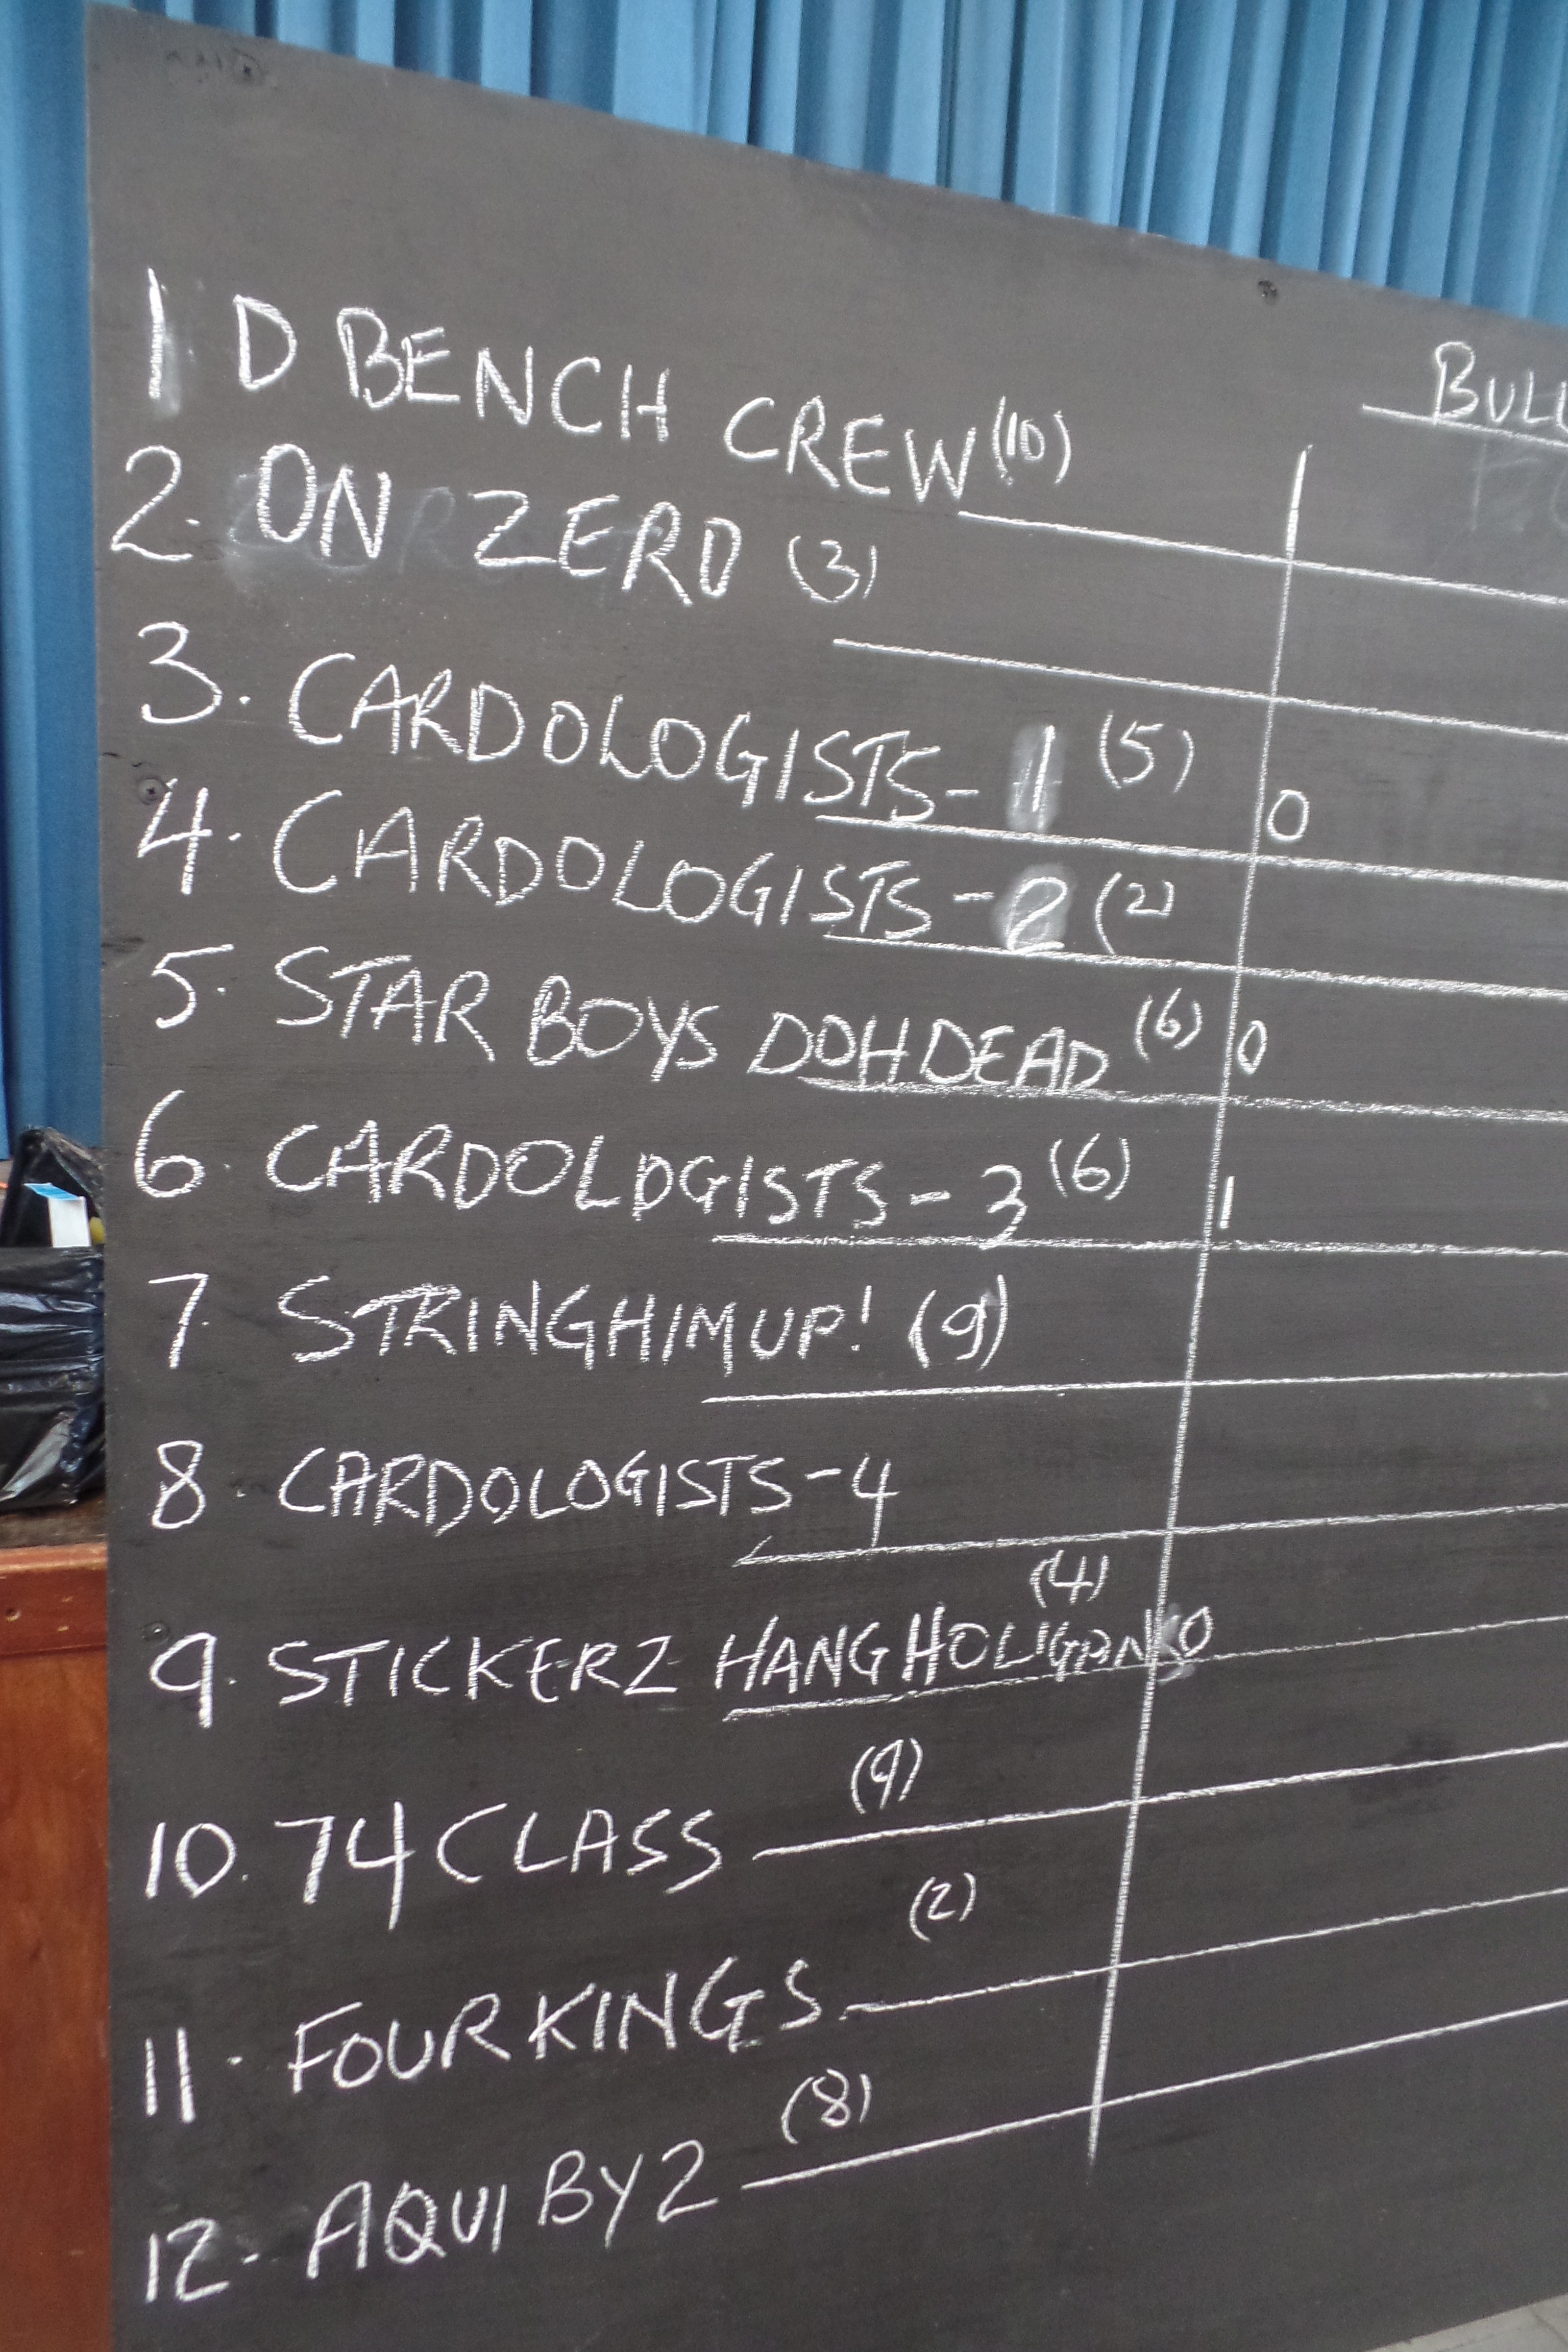 BULL
1 D BENCH CREW (10)
2. ON ZERO (3)
3. CARDOLOGISTS - 1 (5) 0
4. CARDOLOGISTS - 2 (2)
5. STAR BOYS DOH DEAD (6) 0
6. CARDOLOGISTS - 3 (6) 1
7. STRINGHIMUP! (9)
8. CARDOLOGISTS - 4
(4)
9. STICKERZ HANG HOLIGANS 0
(9)
10. 74 CLASS
(2)
11. FOUR KINGS
(8)
12. AQUI BY 2